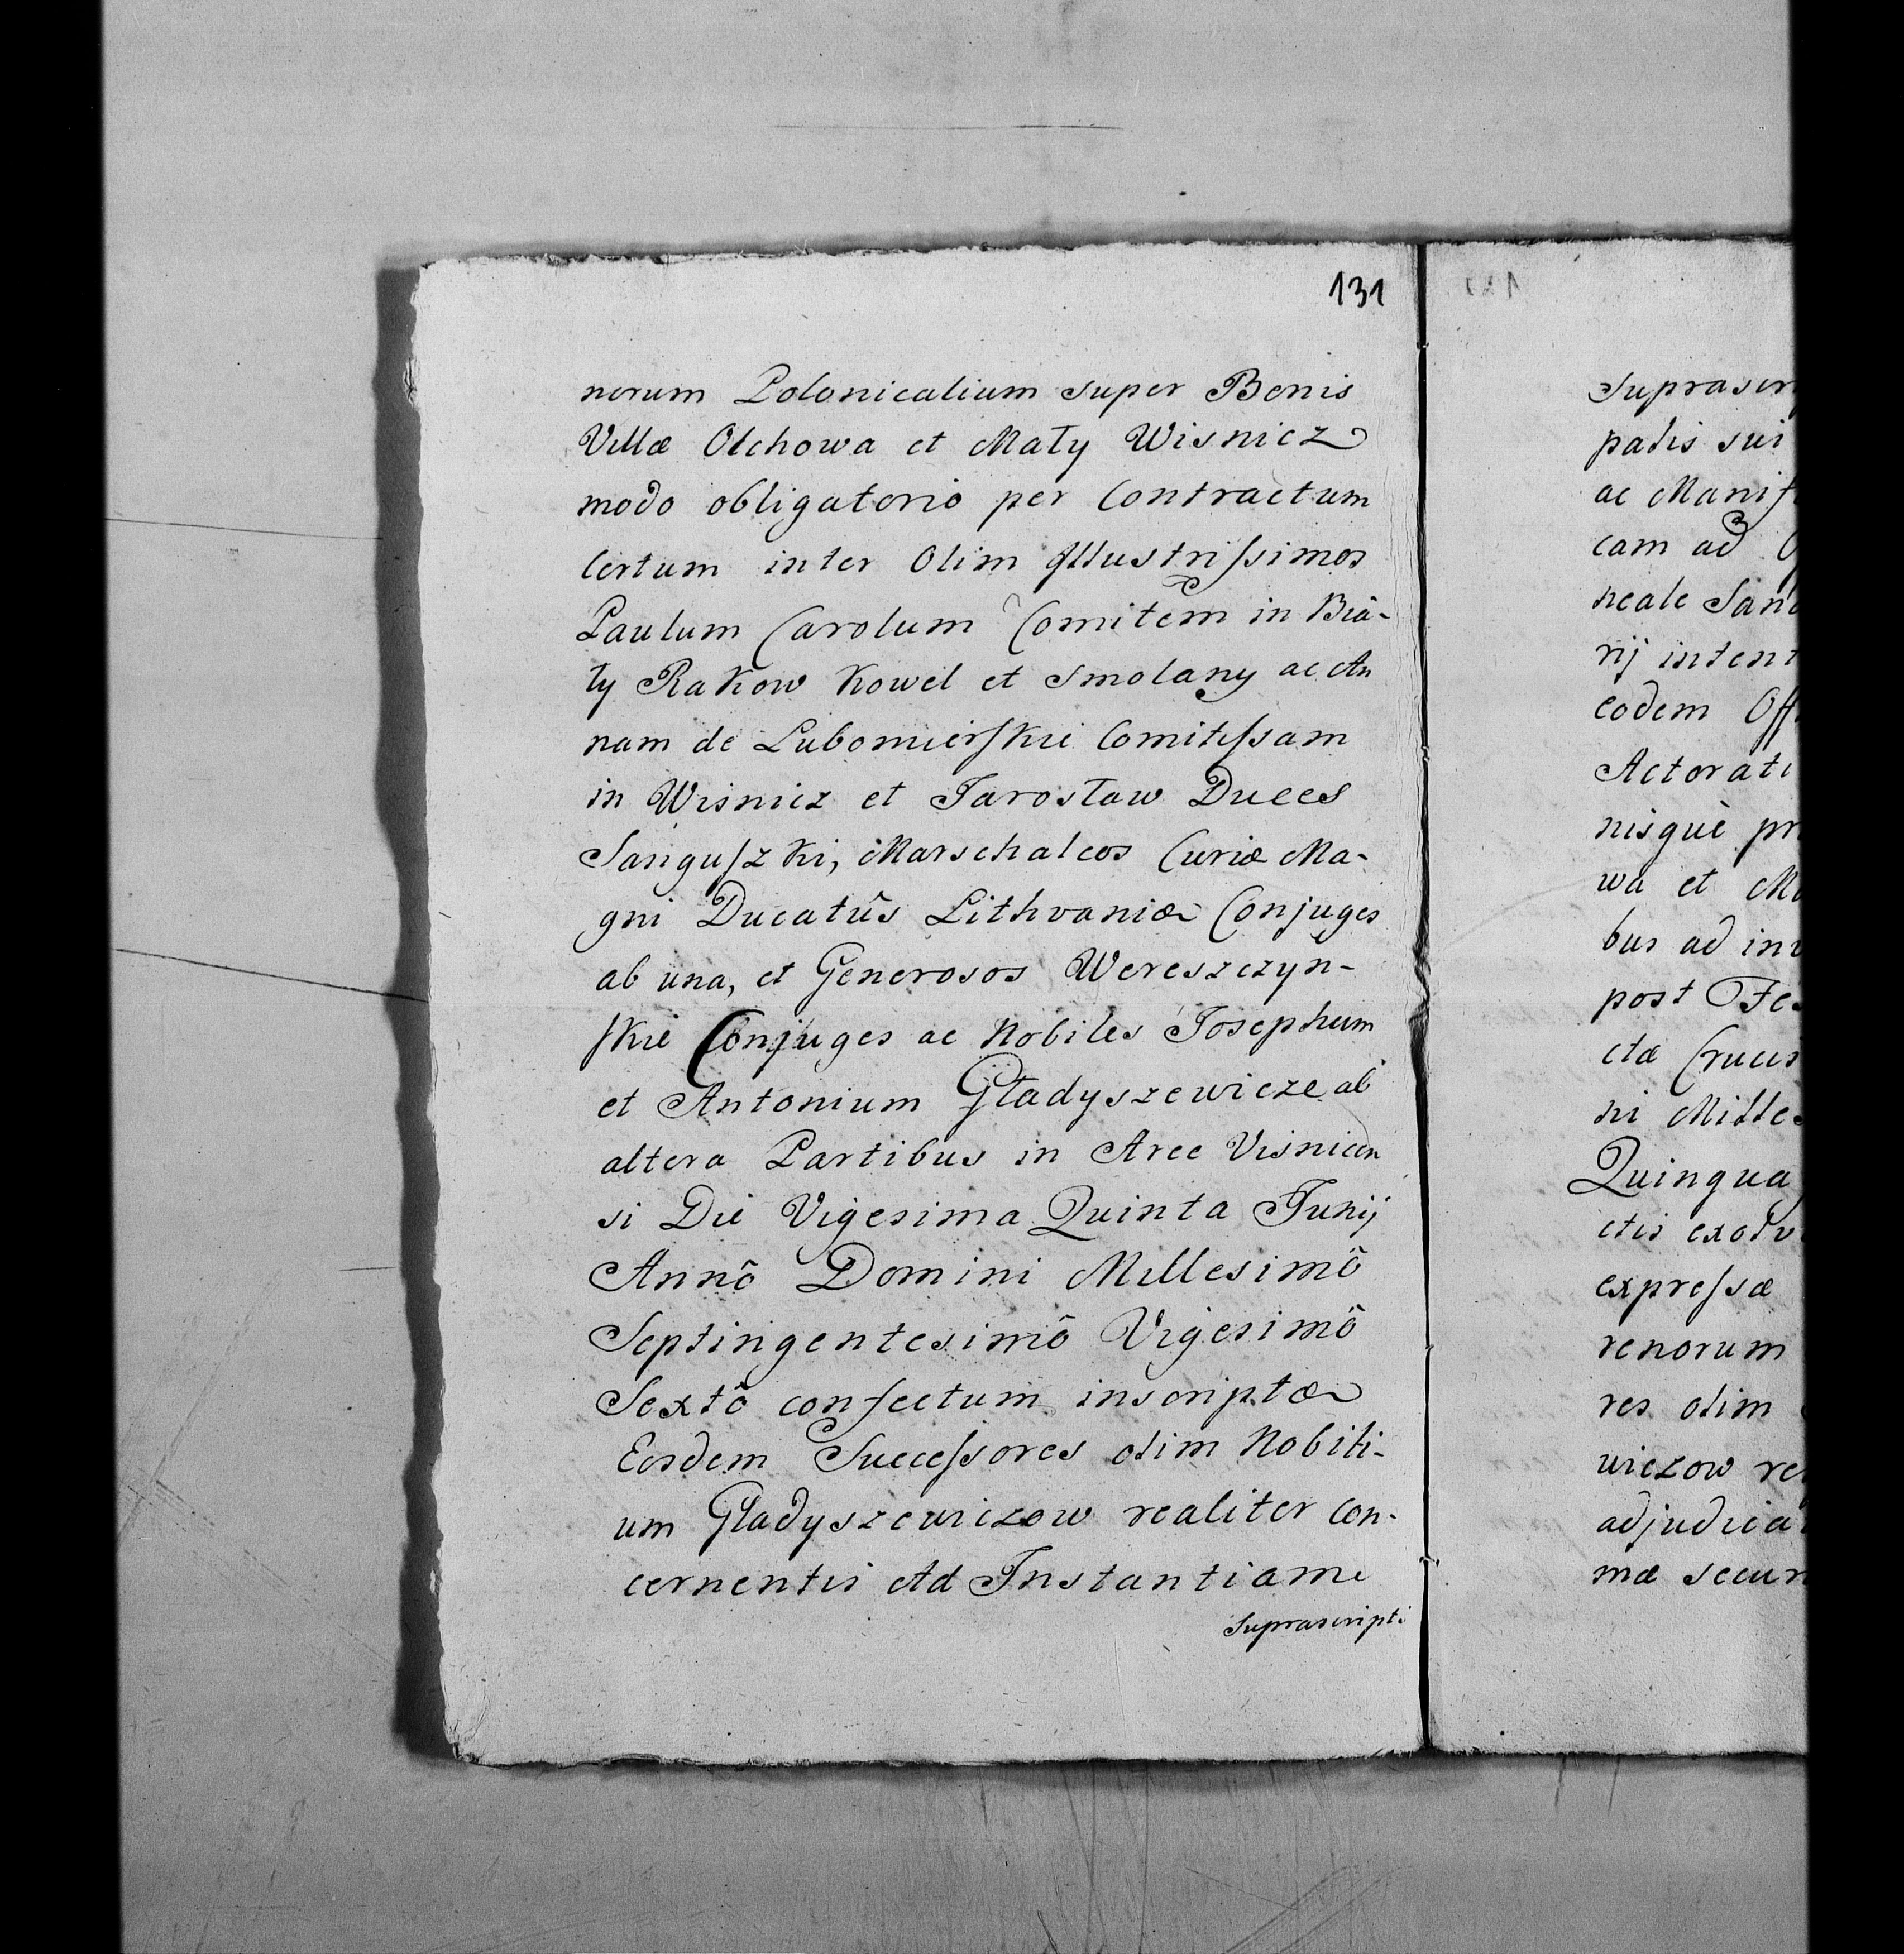 131
norum Polonicalium super Bonis
Villæ Olchowa et Mały Wisnicz
modo obligatorio per Contractum
Certum inter Olim Illustriſsimos
Paulum Carolum Comitem in Bia-
ły Rakow Kowel et Smolany ac An
nam de Lubomierſkie Comitiſsam
in Wisnicz et Jarosław Duces
Sanguſzki, Marschalcos Curiæ Ma-
gni Ducatûs Lithvaniæ Conjuges
ab una, et Generosos Wereszczyn-
ſkie Conjuges ac Nobiles Josephum
et Antonium Gładyszewicze ab
altera Partibus in Arce Visnicen
si Die Vigesima Quinta Junij
Annô Domini Millesimô
Septingentesimô Vigesimô
Sextô confectum inscriptæ
Eosdem Succeſsores olim Nobili-
um Gładyszewiczow realiter con-
cernentis Ad Instantiam
Suprascripti
Suprascri
patis sui
ac Manif
cam ad O
neale San
rij inten
eodem Off
Actorati
nisquè pr
wa et Ma
bus ad in
post Fes
ctæ Crucis
ni Milles
Quinqua
ctis
expreſsæ
renorum
res olim
wiczow re
adjudica
mæ secun